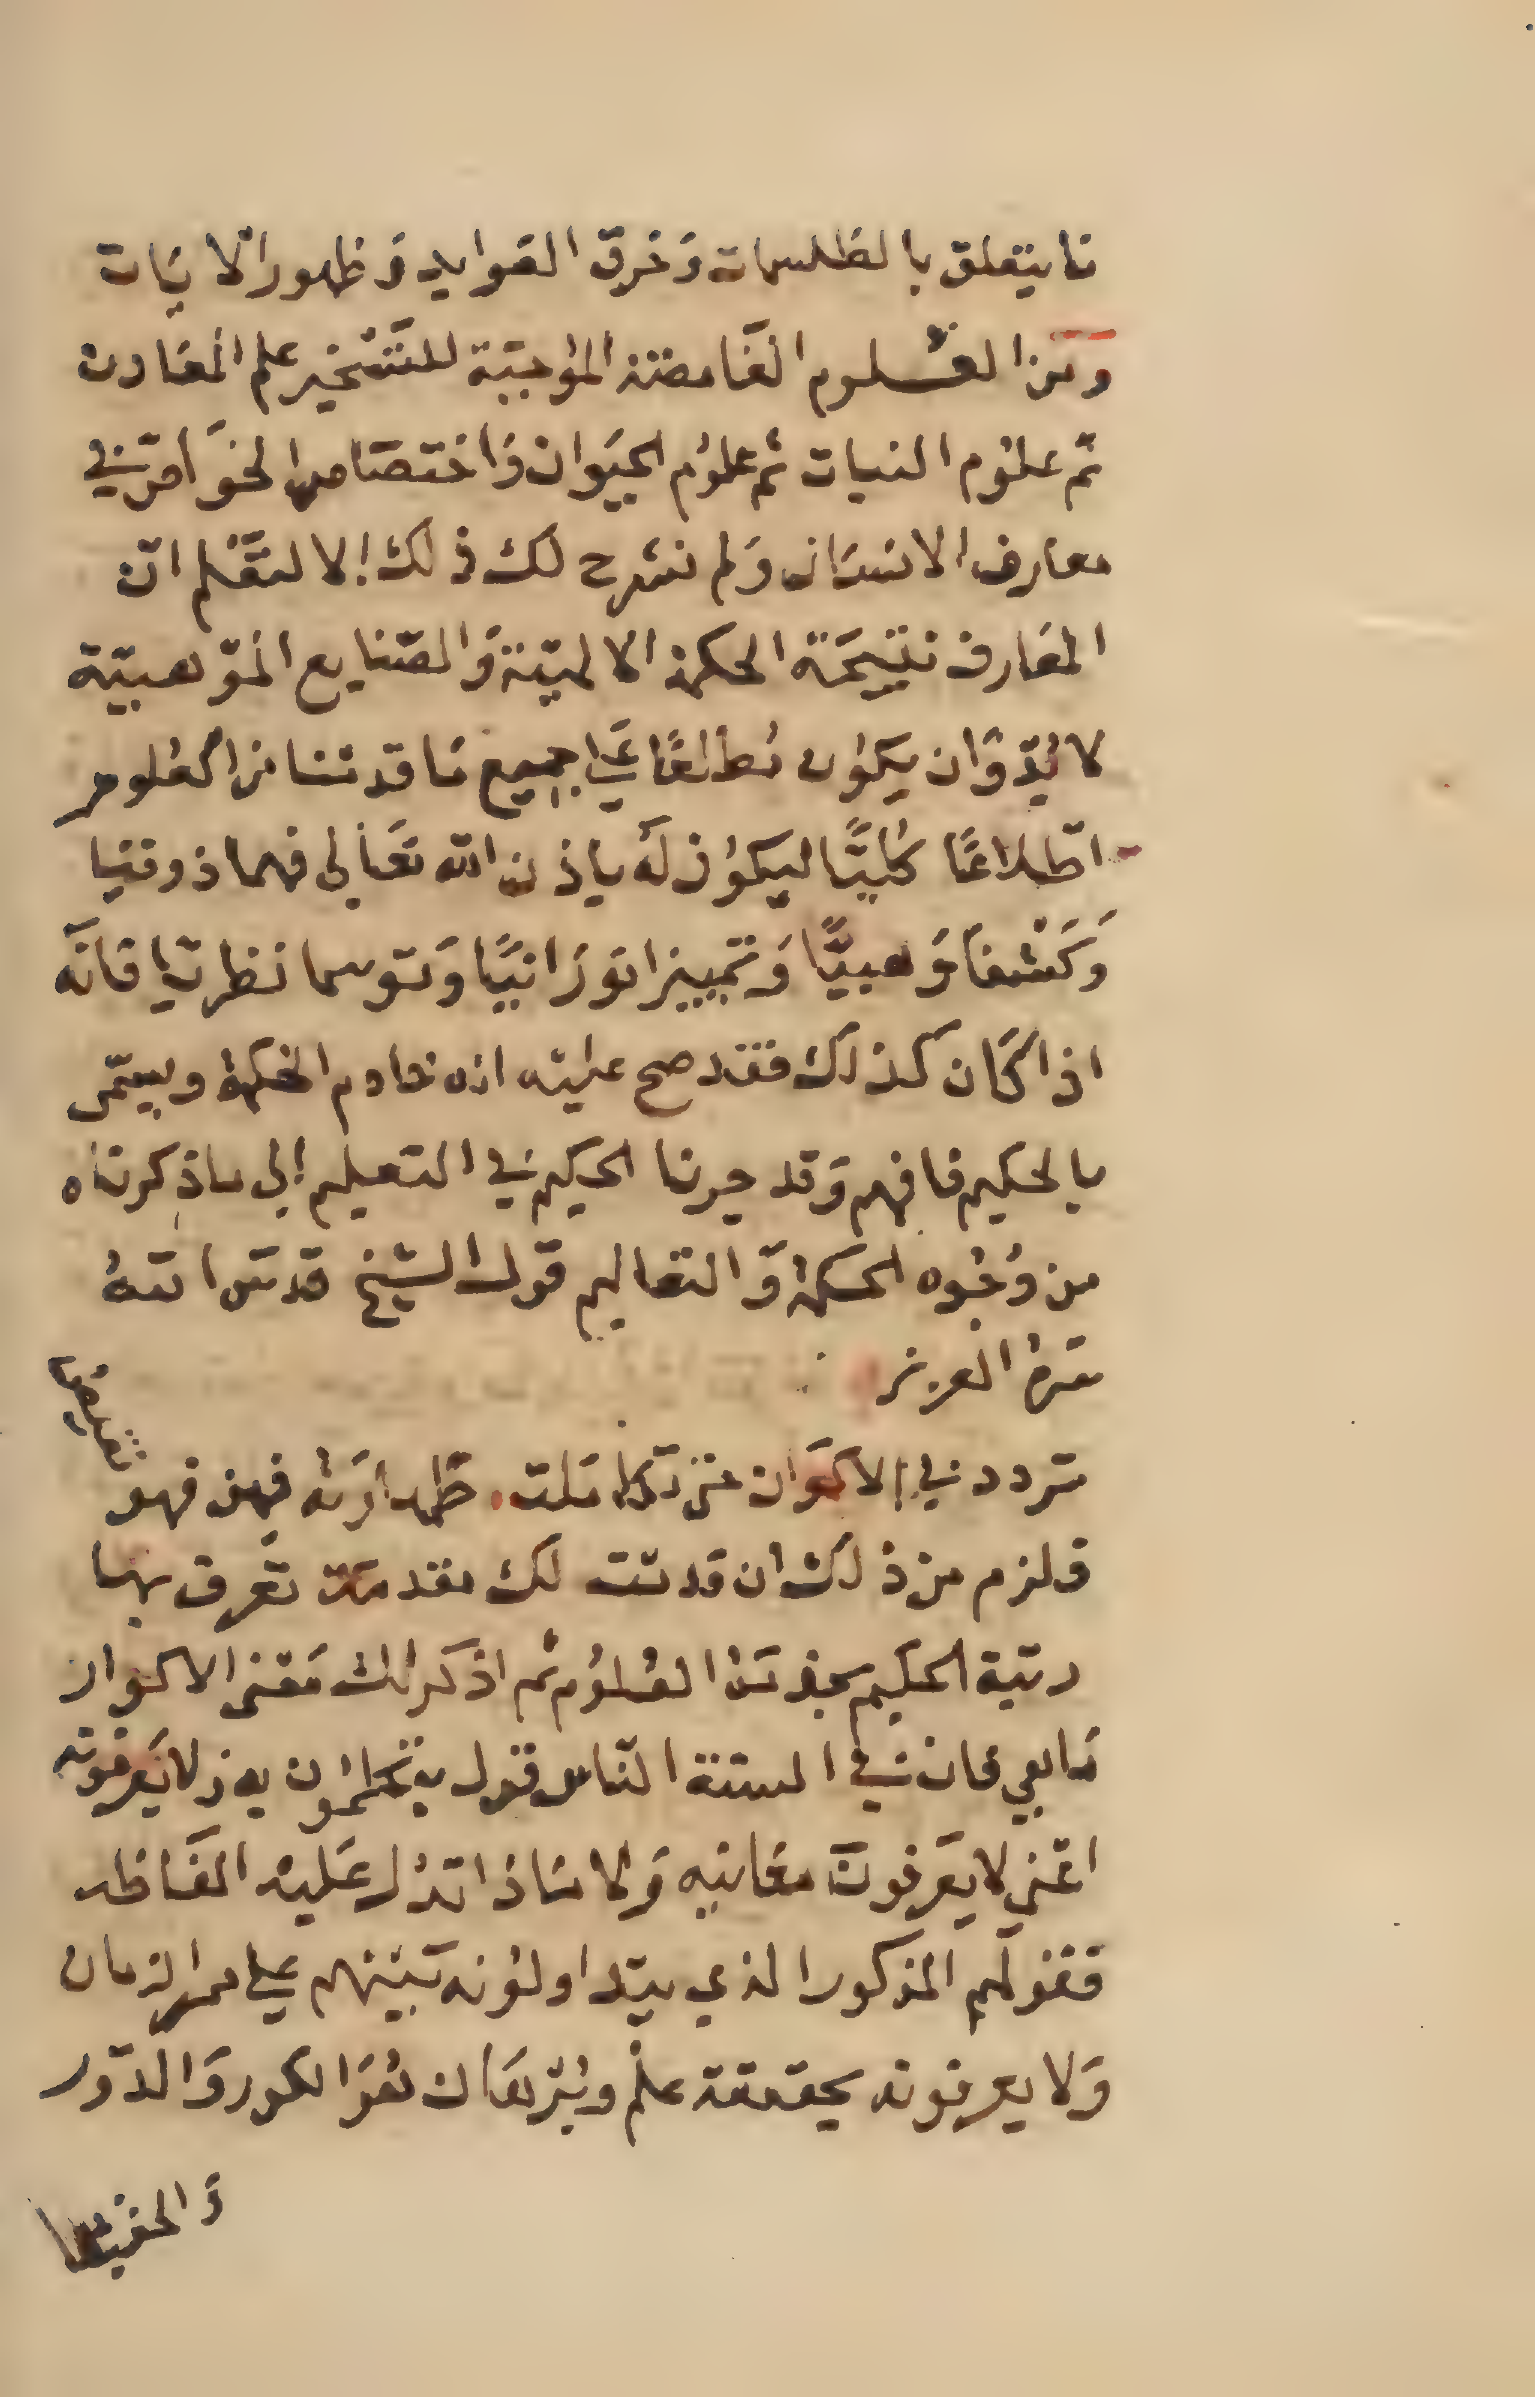 ما يتعلق بالطلسمات وَخرق العوايد وَظهور الايَات
وَمن العُلوم الغَامضة الموُجبَة للتسَخير علم المعَادن
ثم علوُم النبات ثم علوُم الحيَوان وَاختصَاصها لخوَاصّ في
معارف الانسَان وَلم نشرح لك ذلك الا لتعَلم ان
المعَارف نتيجَة الحكمة الالهيّة وَالصّنايع الموّهبيّة
لا بُدّ وَّان يكوُن مُطالعًا عَلى جميع مَا قدمنا من العُلوم
اطّلاعًا كُليًّا ليكوُن لَه باذن الله تعَالى فهما ذوقيا
وَكَشفا وَهبيًّا وَتمييزا نوَرَانيًا وَتوسما نظريا فانَه
اذا كَان كذلك فقد صح عليَه انه خادم الحكمة ويسمّى
بالحكيم فافهم وَقد جرنا الحكيم في التعليم الى ماذكرنَاه
من وُجُوه الحكمة وَّالتعاليم قول الشيخ قدسَ اللهُ
سَرهُ العزيز
تردد في الاكوَان عن تكاملت ظهدارَته فهن فهو
فلزم من ذلك ان قدمت لك مقدمَة تعَرف بهَا
رتبة الحكيم بهذه العُلوُم ثم اذكر لك مَعنى الاكوار
مَا هي فان في السنة النّاس قول يتكلموُن به وَلا يَعرفونه
اعَني لا يَعَرفونَ معَانيه وَلا مَاذا تدُل عَليه الفَاظه
فقولهم المذكور الذي يتدَاولوُنه بَينهم على ممر الزمان
وَلا يعرفونه بحقيقة علم وبُرّهَان هُوَ الكور وَالدوّر